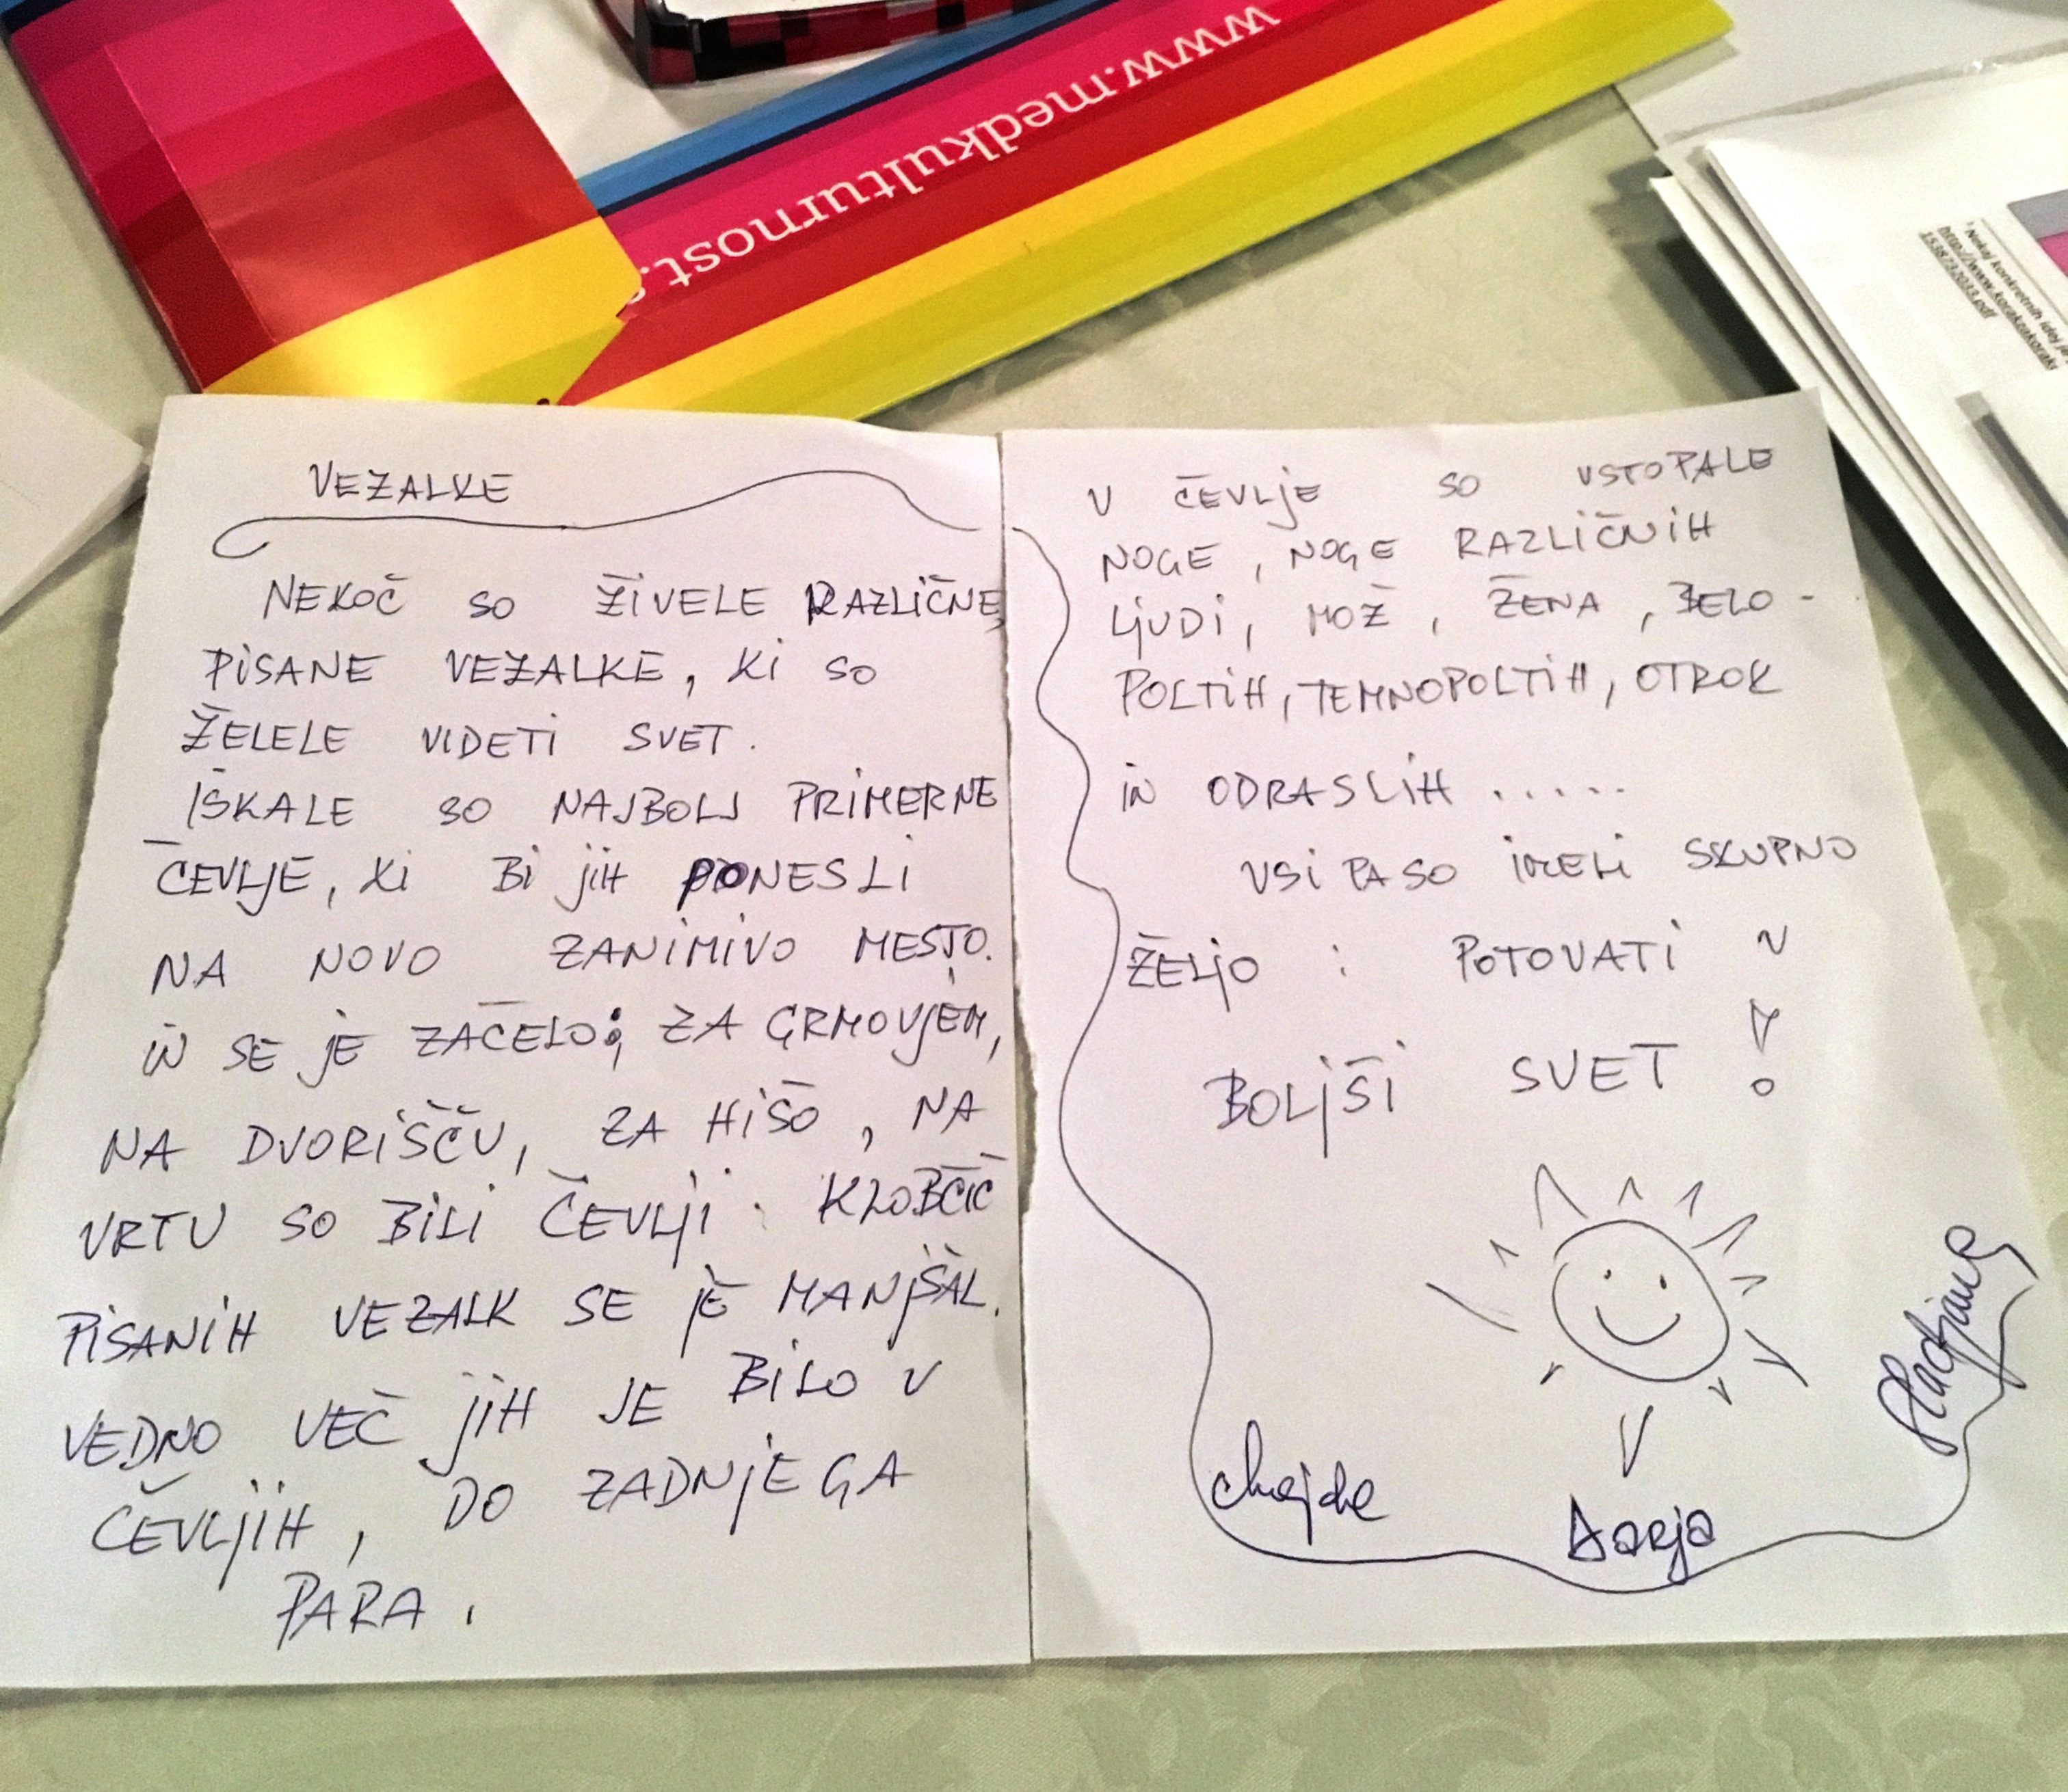 www.medkulturnost.
¹ Nekaj konkretnih idej je
VEZALKE
NEKOČ SO ŽIVELE RAZLIČNE,
PISANE VEZALKE, KI SO
ŽELELE VIDETI SVET.
ISKALE SO NAJBOLJ PRIMERNE
ČEVLJE, KI BI JIH PONESLI
NA NOVO ZANIMIVO MESTO.
IN SE JE ZAČELO; ZA GRMOVJEM,
NA DVORIŠČU, ZA HIŠO, NA
VRTU SO BILI ČEVLJI. KLOBČIČ
PISANIH VEZALK SE JE MANJŠAL.
VEDNO VEČ JIH JE BILO V
ČEVLJIH, DO ZADNJEGA
PARA.
V ČEVLJE SO VSTOPALE
NOGE, NOGE RAZLIČNIH
LJUDI, MOŽ, ŽENA, BELO-
POLTIH, TEMNOPOLTIH, OTROK
IN ODRASLIH .....
VSI PA SO IMELI SKUPNO
ŽELJO : POTOVATI V
BOLJŠI SVET !
Darja